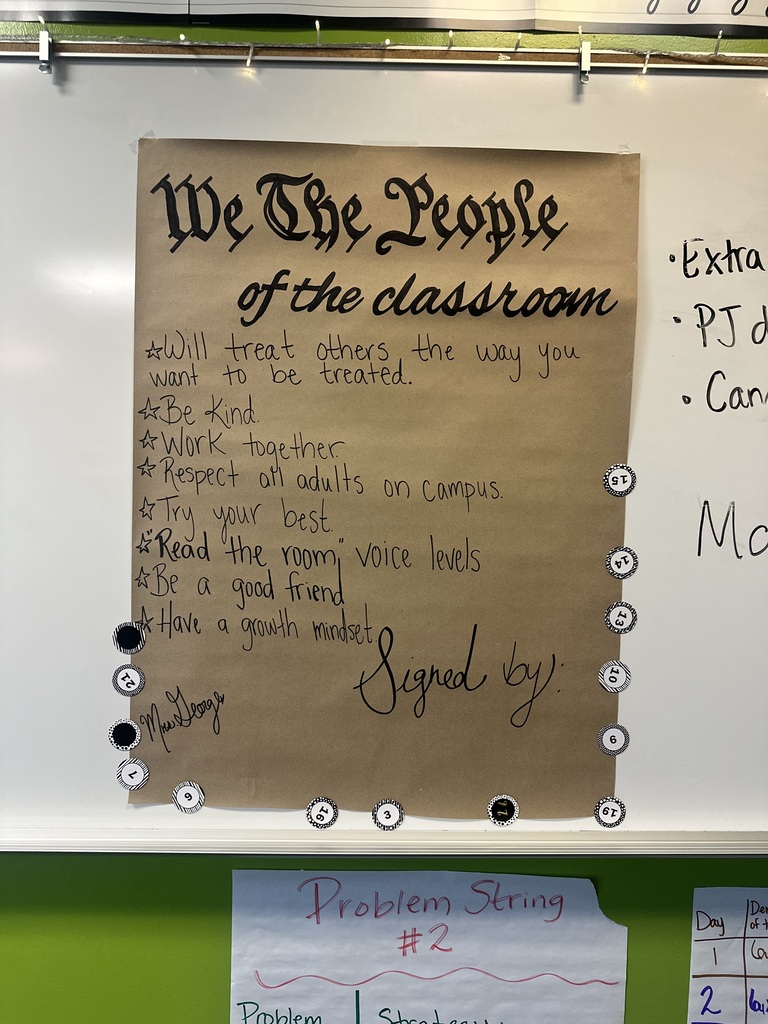 We The People
of the classroom
☆Will treat others the way you
want to be treated.
☆Be kind.
☆Work together.
☆Respect all adults on campus.
☆Try your best.
☆"Read the room" voice levels
☆Be a good friend
☆Have a growth mindset.
Signed by:
Mrs. George
15
14
13
10
9
19
3
16
6
7
21
•Extra
•PJ d
•Can
Mo
Problem String
#2
Problem
Strategy
Day
1
2